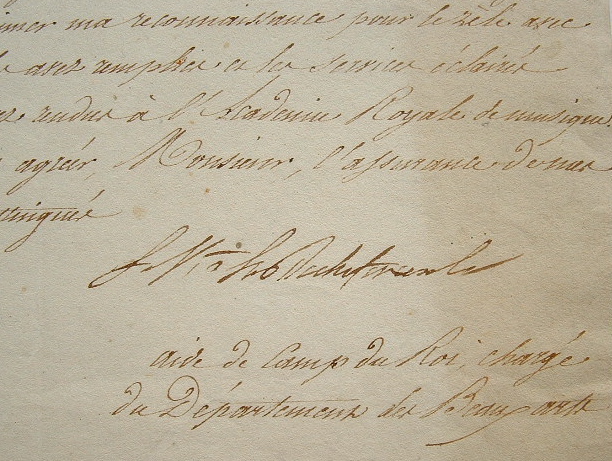 imer ma reconnaissance pour le zèle avec
avez remplies et les services éclairés
rendus à l'Académie Royale de musique.
agréer, Monsieur, l'assurance de mes
stingués
aide de Camp du Roi, chargé
du Département des Beaux arts